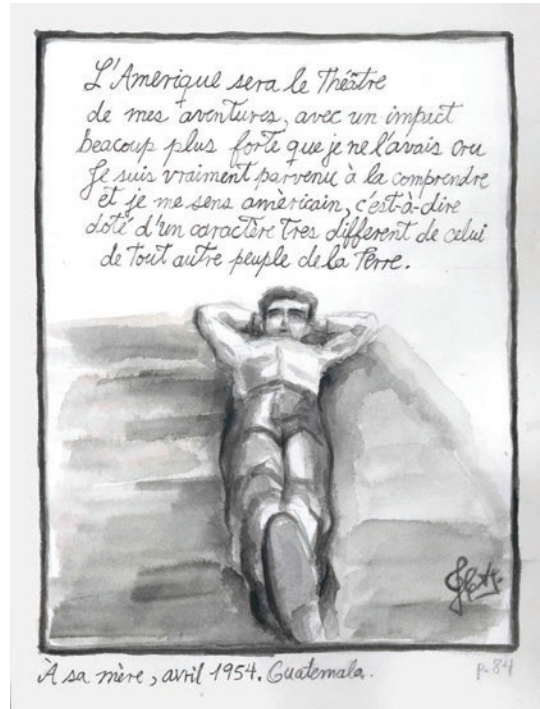 L'Amerique sera le Théâtre
de mes aventures, avec un impact
beacoup plus forte que je ne l'avais cru
Je suis vraiment parvenu à la comprendre
et je me sens amèricain, c'est-à-dire
doté d'un caractère tres different de celui
de tout autre peuple de la Terre.
À sa mère, avril 1954. Guatemala.
p. 84